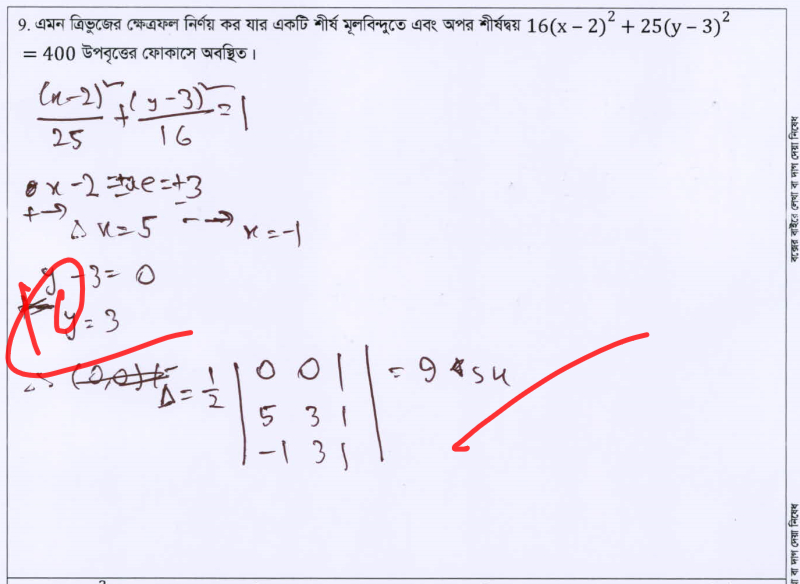 9. এমন ত্রিভুজের ক্ষেত্রফল নির্ণয় কর যার একটি শীর্ষ মূলবিন্দুতে এবং অপর শীর্ষদ্বয় 16(x − 2)² + 25(y − 3)²
= 400 উপবৃত্তের ফোকাসে অবস্থিত।
(x-2)²/25 + (y-3)²/16 = 1
x-2 = ±ae = ±3
+→ ∴ x=5 -→ x=-1
y-3= 0
y=3
10
(0,0) Δ = 1/2 | 0 0 1 | = 9 su
5 3 1
-1 3 1
বক্সের বাইরে লেখা বা দাগ দেয়া নিষেধ
বা দাগ দেয়া নিষেধ